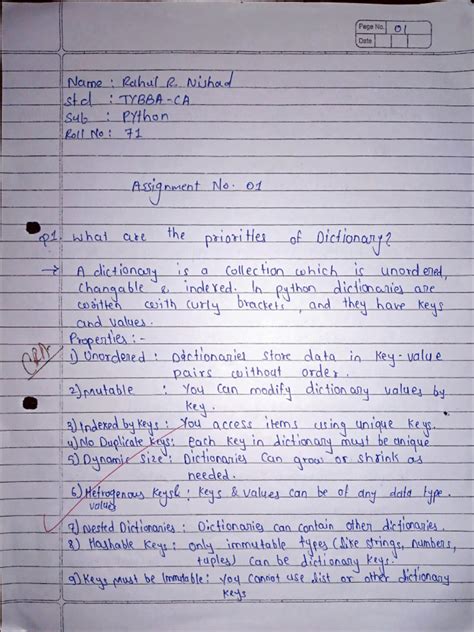 Page No. 01
Date
Name : Rahul R. Nishad
std : TYBBA-CA
Sub : Python
Roll No : 71
Assignment No. 01
Q1. What are the priorities of Dictionary?
→ A dictionary is a collection which is unordered,
changable & indexed. In python dictionaries are
written with curly brackets, and they have keys
and values.
Properties :-
1) Unordered : Dictionaries store data in key-value
pairs without order.
2) mutable : You can modify dictionary values by
key.
3) Indexed by keys : You access items using unique keys.
4) No Duplicate keys: each key in dictionary must be unique
5) Dynamic Size : Dictionaries can grow or shrink as
needed.
6) Hetrogenous Keys & : keys & values can be of any data type.
values
7) Nested Dictionaries : Dictionaries can contain other dictionaries.
8) Hashable Keys : only immutable types (like strings, numbers,
tuples) can be dictionary keys.
9) Keys must be Immutable : you cannot use list or other dictionary
keys